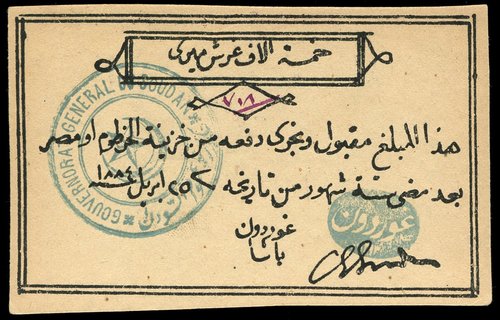 خمسة الاف غرش ميرى
٧٠٨
هذا المبلغ مقبول ويجرى دفعه من خزينة الخرطوم او مصر
بعد مضى ستة شهور من تاريخه ٢٥ ابريل سنة ١٨٨٤
غوردون
باشا
غوردون
GOUVERNORAT GENERAL DU SOUDAN